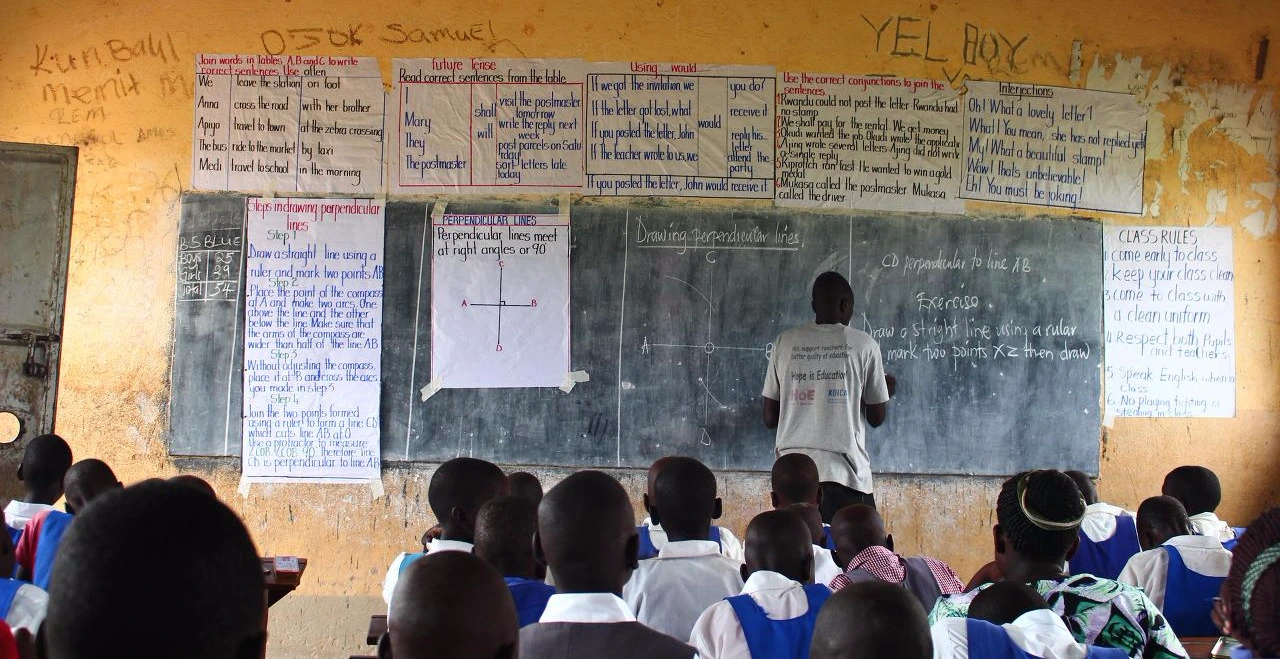 Kun Bahl
memit M
REM
OJOK SAMUEL
YEL BOY
Join words in Tables A,B and C to write
correct sentences. Use often
We leave the station on foot
Anna cross the road with her brother
Apiyo travel to town at the zebra crossing
The bus ride to the market by taxi
Medi travel to school in the morning
Future Tense
Read correct sentences from the table
I
Mary
They
The postmaster
shall
will
visit the postmaster
tomorrow
write the reply next
week
post parcels on Satu
rday
sort letters late
today
Using: would
If we got the invitation, we
If the letter got lost, what
If you posted the letter, John
If the teacher wrote to us, we
would
you do?
receive it
reply his..
letter
attend the
party
If you posted the letter, John would receive it
Use the correct conjunctions to join the
sentences
1. Rwanda could not post the letter Rwanda had
no stamp
We shall pay for the rental. We get money
Okudi wanted the job Okudi wrote the applicatio
Ajing wrote several letters Ajing did not write
a single reply
Kiprotich ran fast He wanted to win a gold
medal
Mukasa called the postmaster Mukasa
called the driver
Interjections
Oh! What a lovely letter!
What! You mean, she has not replied yet!
My! What a beautiful stamp!
Wow! That's unbelievable!
Eh! You must be joking!
P.5 BLUE
Boys 25
Girls 29
Total 54
Steps in drawing perpendicular
lines
Step 1
Draw a straight line using a
ruler and mark two points AB
Step 2
Place the point of the compass
at A and make two arcs. One
above the line and the other
below the line. Make sure that
the arms of the compass are
wider than half of the line AB
Step 3
Without adjusting the compass,
place it at B and cross the arcs
you made in step
Step 4
Join the two points formed
using a ruler to form a line CD
which cuts line AB at O
Use a protractor to measure
therefore line
CD is perpendicular to line AB
PERPENDICULAR LINES
Perpendicular lines meet
at right angles or 90
C
A B
D
Drawing perpendicular lines
C
A
D
CD perpendicular to line AB
Exercise
Draw a stright line using a rular
mark two points XZ then draw
We support teachers for
better quality of education
Hope is Education
HoE KOICA
CLASS RULES
1 come early to class
2 keep your class clean
3 come to class with
a clean uniform
4. Respect both Pupils
and teachers
5 Speak English when in
class
6. No playing fighting or
stealing in class